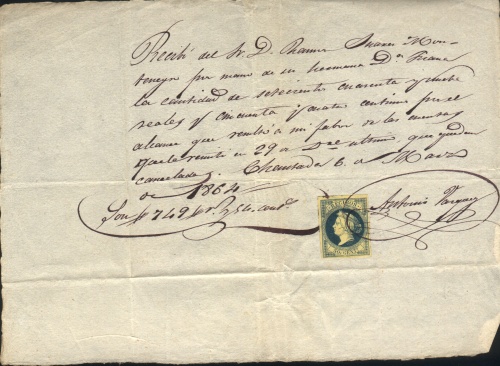 Recibí del Sr. D. Ramon Suarez Mon-
tenegro por mano de su hermana Dª
la cantidad de setecientos cuarenta y nueve
reales y cincuenta y cuatro centimos por el
alcance que resultó a mi fabor de las cuentas
veinte en 29 de del ultimo, que quedan
canceladas. Chantada 6. de Marzo
de 1864
Son 749 rs. 54. cent.
Antonio Vazquez